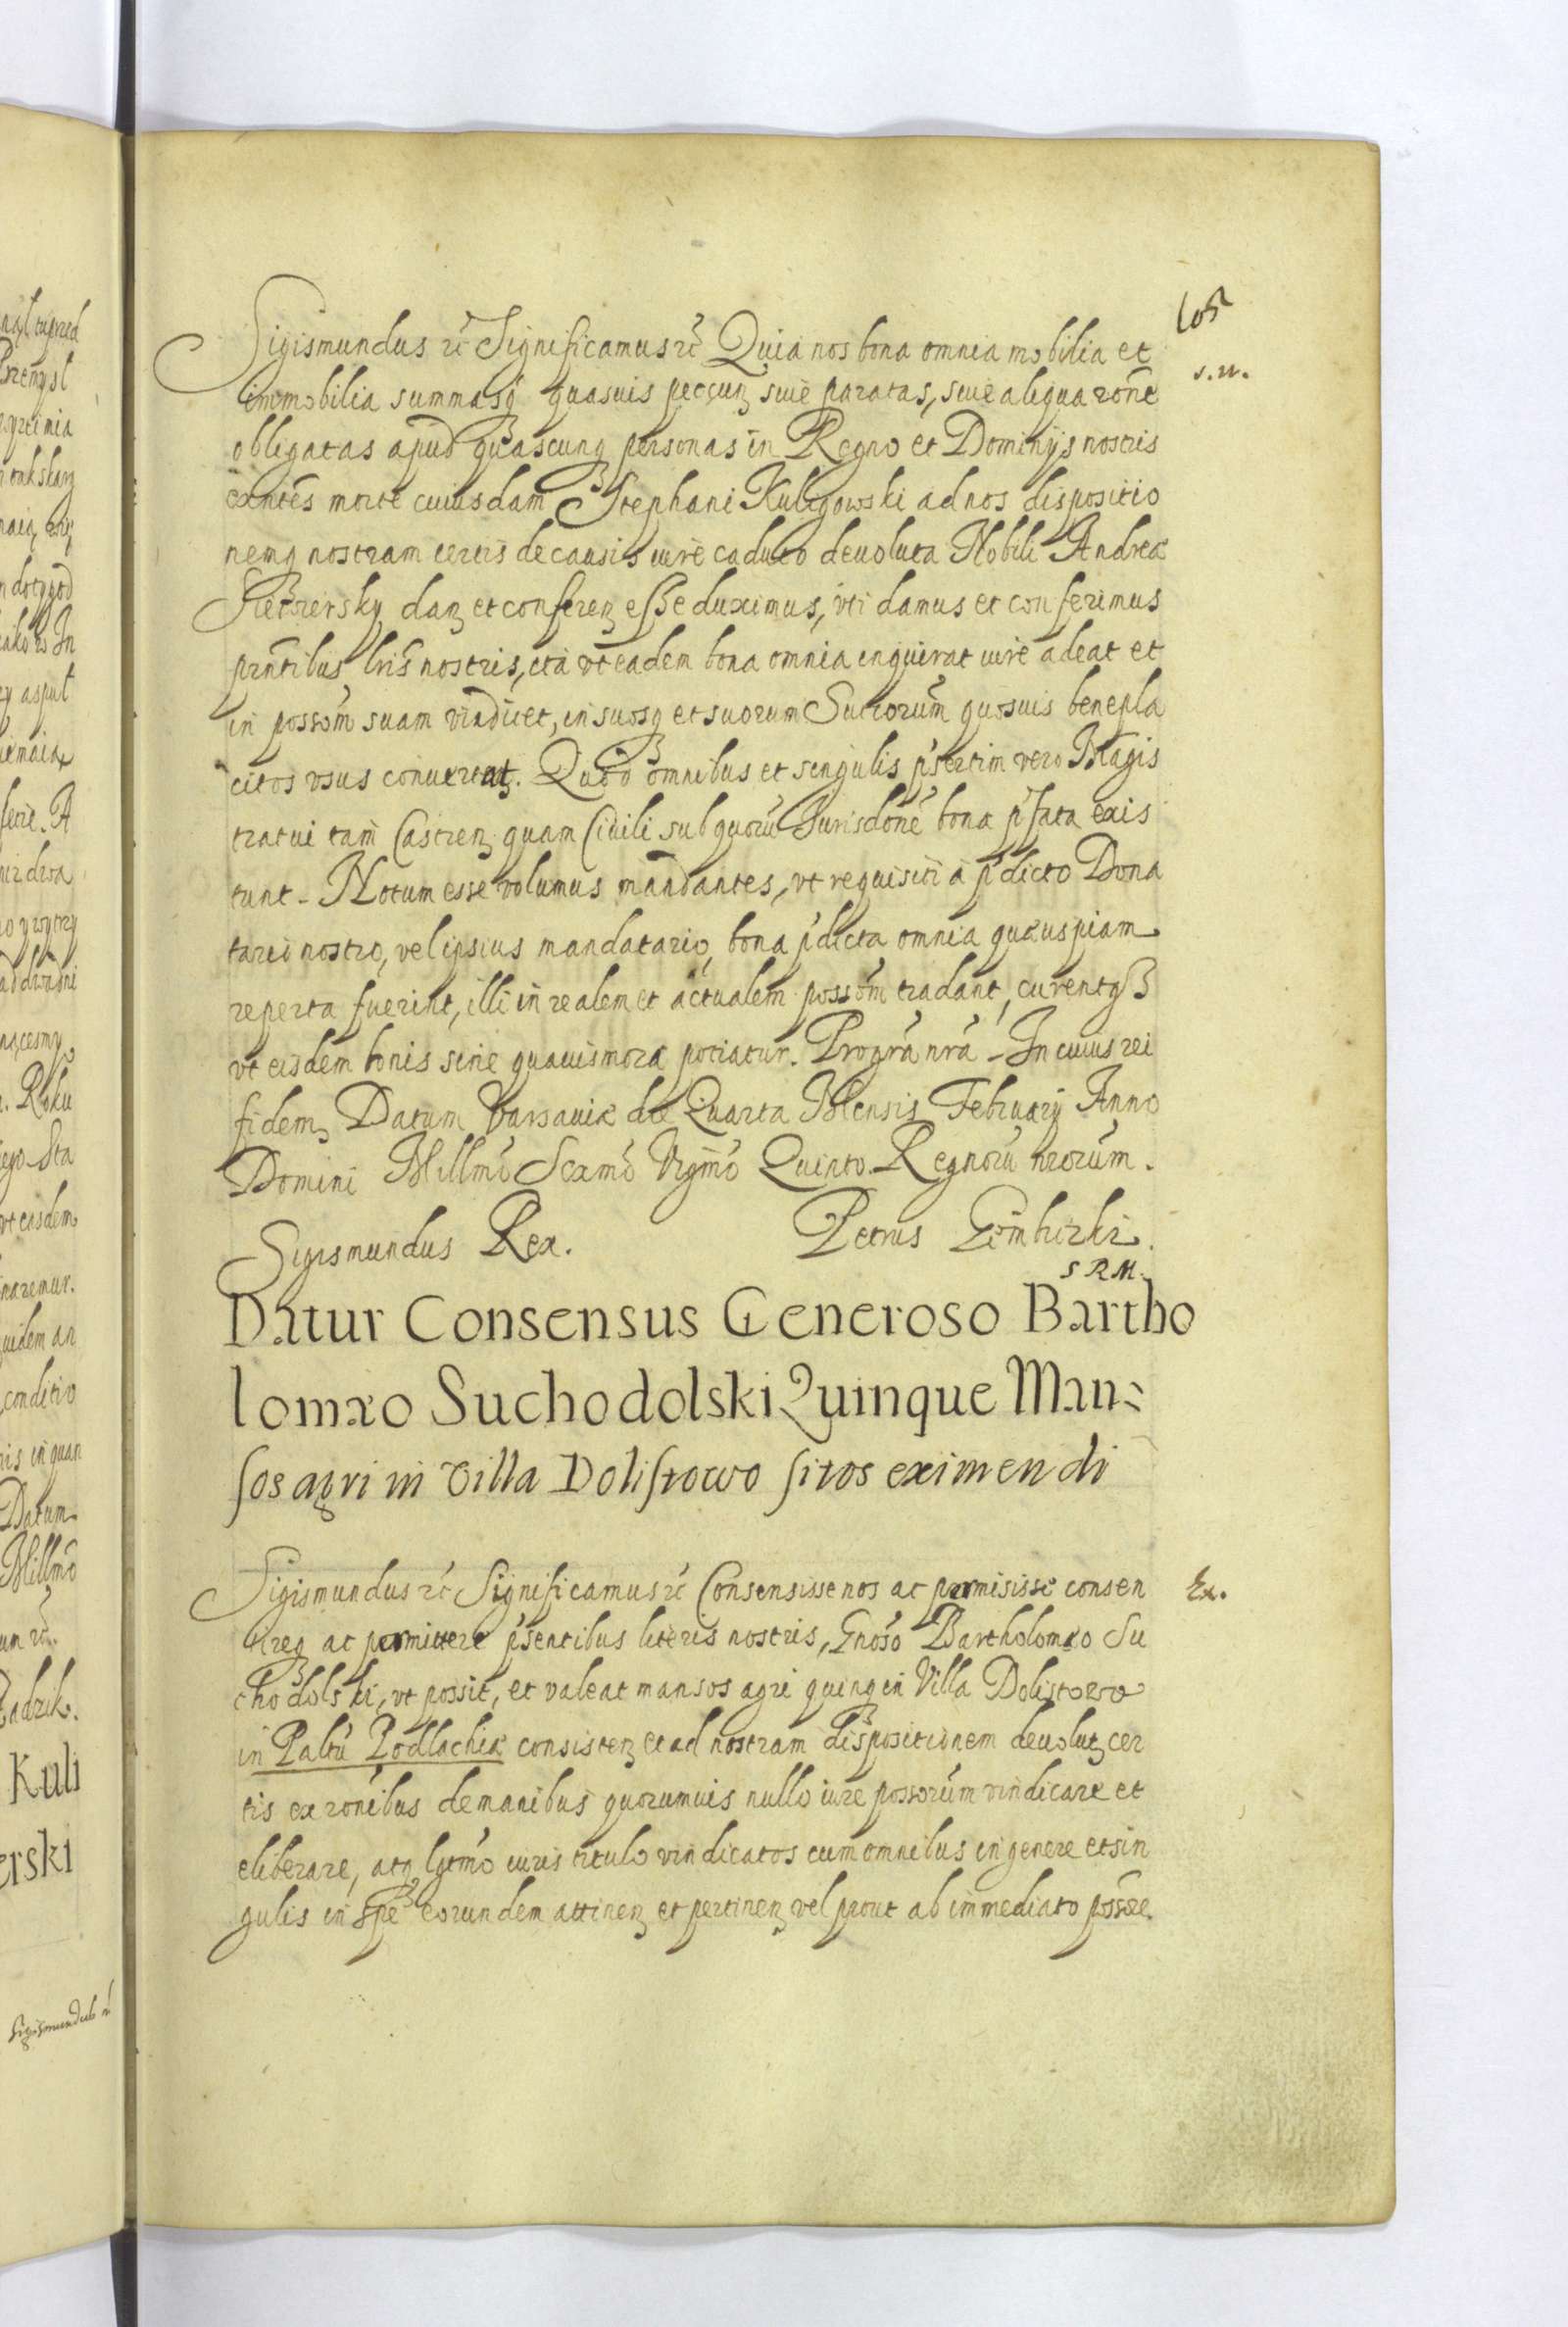 105
s. n.
Sigismundus rc̄ Significamus rc̄ Quia nos bona omnia mobilia et
immobilia summasq̨ quasuis pecun̨ siue paratas, siue aliqua rōne
obligatas apud quascunq̨ personas in Regno et Dominijs nostris
exn̄tēs morte cuiusdam Stephani Kuligowski ad nos dispositio
nemq̨ nostram certis de causis iure caduco deuoluta Nobili Andreæ
dan̨ et conferen̨ esse duximus, vti damus et conferimus
prn̄tibus lrīs nostris, ita vt eadem bona omnia inquirat iure adeat et
in possom̄ suam vindicet, in suosq̨ et suorum Suc̄rorum̄ quosuis benepla
citos vsus conuertat. Quod omnibus et singulis p̄sertim vero Magis
tratui tam Castren̨ quam Ciuili sub quorū Jurisdōne bona p̄fata exis
tunt - Notum esse volumus mandantes, vt requisiti à p̄dicto Dona
tario nostro, vel ipsius mandatario, bona p̄dicta omnia quæuspiam
reperta fuerint, illi in realem et actualem possom̄ tradant, curentq̨
vt eisdem bonis sine quauis mora potiatur. Pro grā nrā - In cuius rei
fidem Datum Varsauiæ die Quarta Mensis Februarij Anno
Domini Millmō Sexmō Vigmō Quinto. Regnorū nrorūm.
Sigismundus Rex. Petrus Gembicki.
S R M.
Datur Consensus Generoso Bartho
lomæo Suchodolski Quinque Man-
sos agri in Villa Dolistowo sitos eximendi
Sigismundus rc̄ Significamus rc̄ Consensisse nos ac permisisse consen
Ex.
tireq̨ ac permittere p̄sentibus literis nostris, Gnōso Bartholomæo Su
chodolski, vt possit, et valeat mansos agri quinq̨ in Villa Dolistowo
in Paltū Podlachiæ consisten̨ et ad nostram dispositionem deuolut̨ cer
tis ex rōnibus de manibus quorumuis nullo iure possorūm vindicare et
eliberare, atq̨ lgtmō iuris titulo vindicatos cum omnibus in genere et sin
gulis in spē eorundem attinen̨ et pertinen̨ vel prout ab immediato possōre